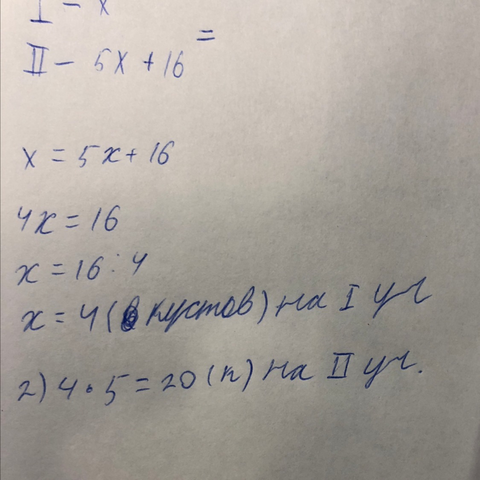 I - x
II - 5x + 16 =
x = 5x + 16
4x = 16
x = 16 : 4
x = 4 (кустов) на I уч
2) 4 · 5 = 20 (к) на II уч.